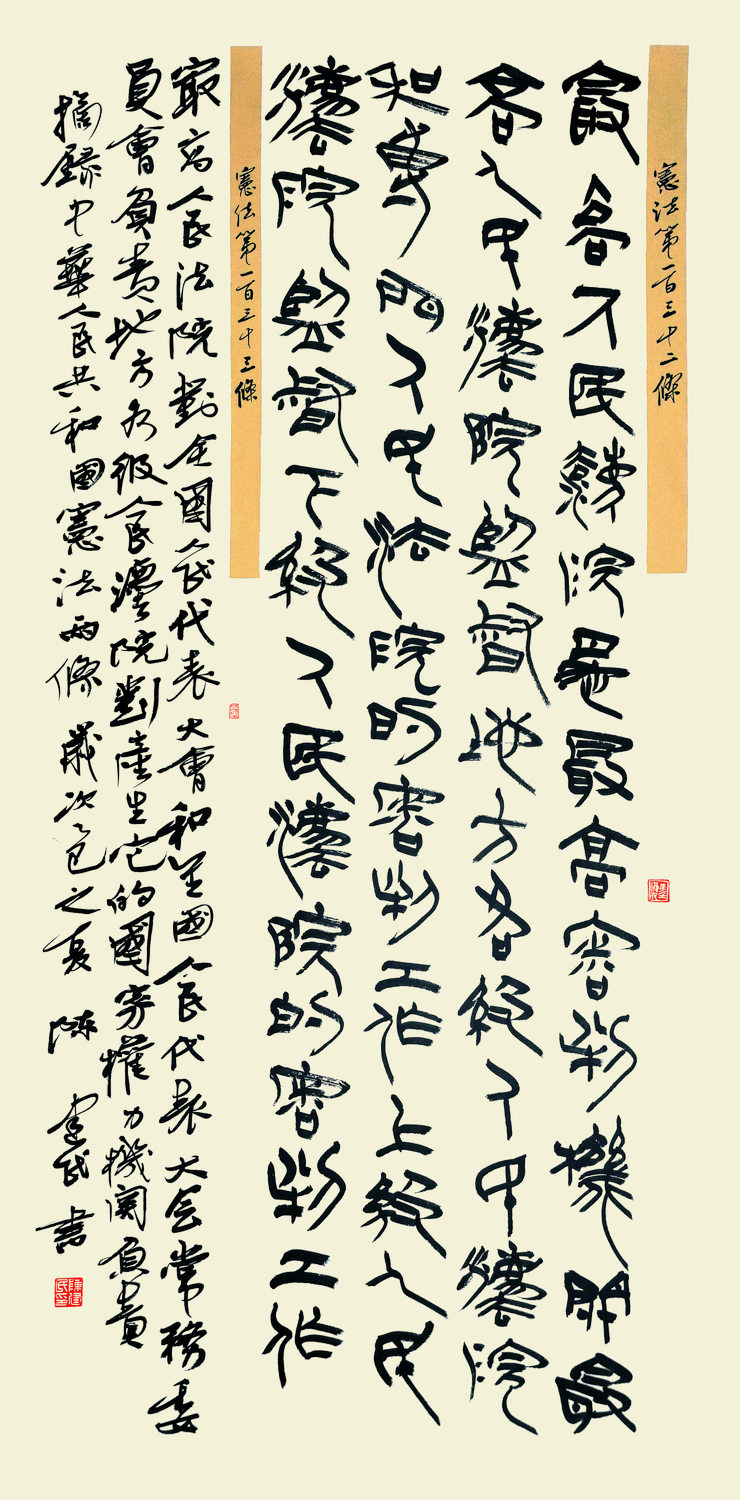 憲法第一百三十二條
最高人民灋院是最高審判機關最
高人民灋院監督地方各級人民灋院
和專門人民法院的審判工作上級人民
灋院監督下級人民灋院的審判工作
憲法第一百三十三條
最高人民法院對全國人民代表大會和全國人民代表大会常務委
員會負責地方各級人民灋院對產生它的國家權力機関負責
摘録中華人民共和國憲法兩條 歲次乙巳之夏 陈建民書
陳建民印